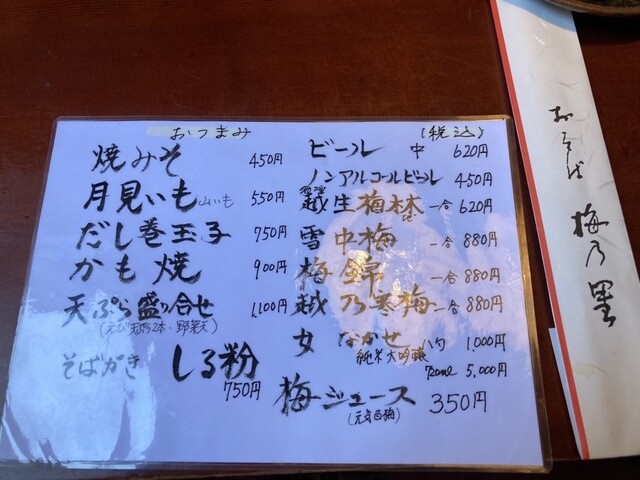 おつまみ
焼みそ 450円
月見いも 山いも 550円
だし巻玉子 750円
かも焼 900円
天ぷら盛り合せ 1,100円
そばがき しる粉
750円
(税込)
ビール 中 620円
ノンアルコールビール 450円
越生梅林 一合 620円
雪中梅 一合 880円
梅錦 一合 880円
越乃寒梅 一合 880円
女なかせ 1,000円
純米大吟醸
720ml 5,000円
梅ジュース 350円
おそば 梅乃里